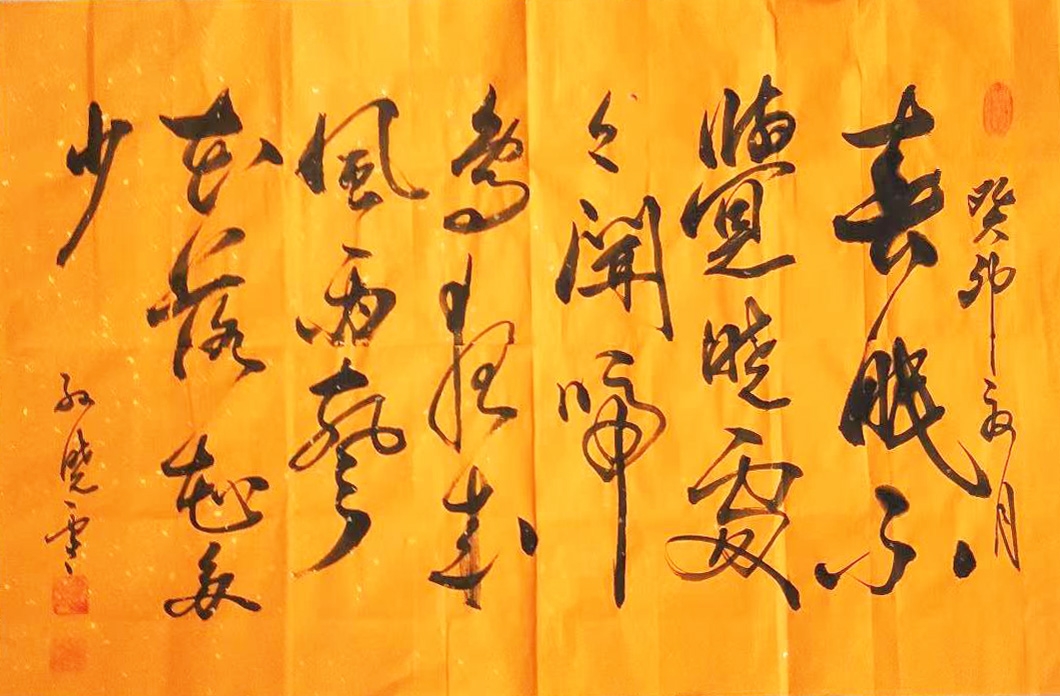 癸卯月
春眠不
覺曉處
々聞啼
鳥夜來
風雨聲
花落知多
少
孙晓云